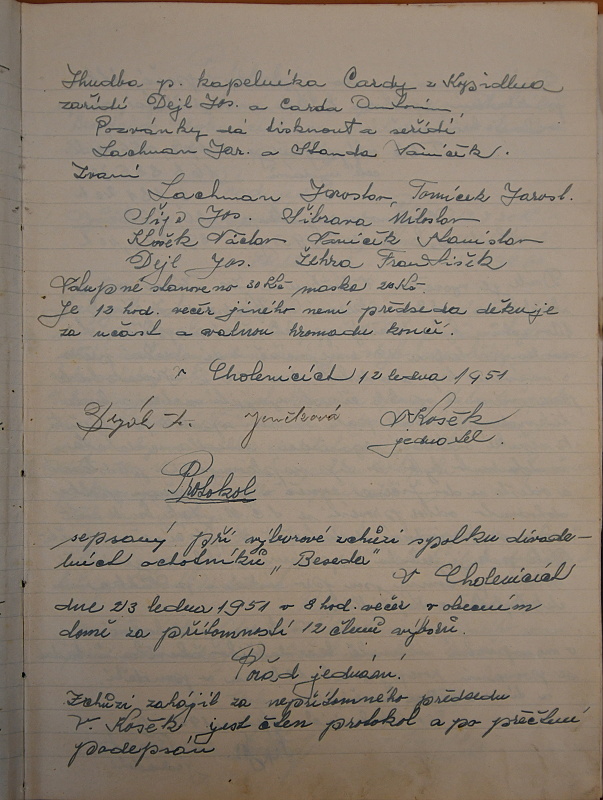 Hudba p. kapelníka Čardy z Kopidlna
zařídí Dejl Jos. a Čarda Antonín,
Pozvánky dá tisknout a seřídí
Lachman Jar. a Standa Vaníček.
Zvaní
Lachman Jaroslav, Tomíček Jarosl.
Jos. Šibrava Miloslav
Václav Vaníček Stanislav
Dejl Jos. Žehra František
Vstupné stanoveno 30 Kčs maska 20 Kčs.
Je 12 hod. večer jiného není předseda děkuje
za účast a valnou hromadu končí.
v Cholenicích 12 ledna 1951
Jeníčková V Kosěk
jednatel.
Protokol
sepsaný při výborové schůzi spolku divade-
lních ochotníků „Beseda"
v Cholenicích
dne 23 ledna 1951 v 8 hod. večer v obecním
domě za přítomností 12 členů výborů.
Pořad jednání.
Schůzi zahájil za nepřítomného předsedu
V. Kosěk jest čten protokol a po přečtení
podepsán